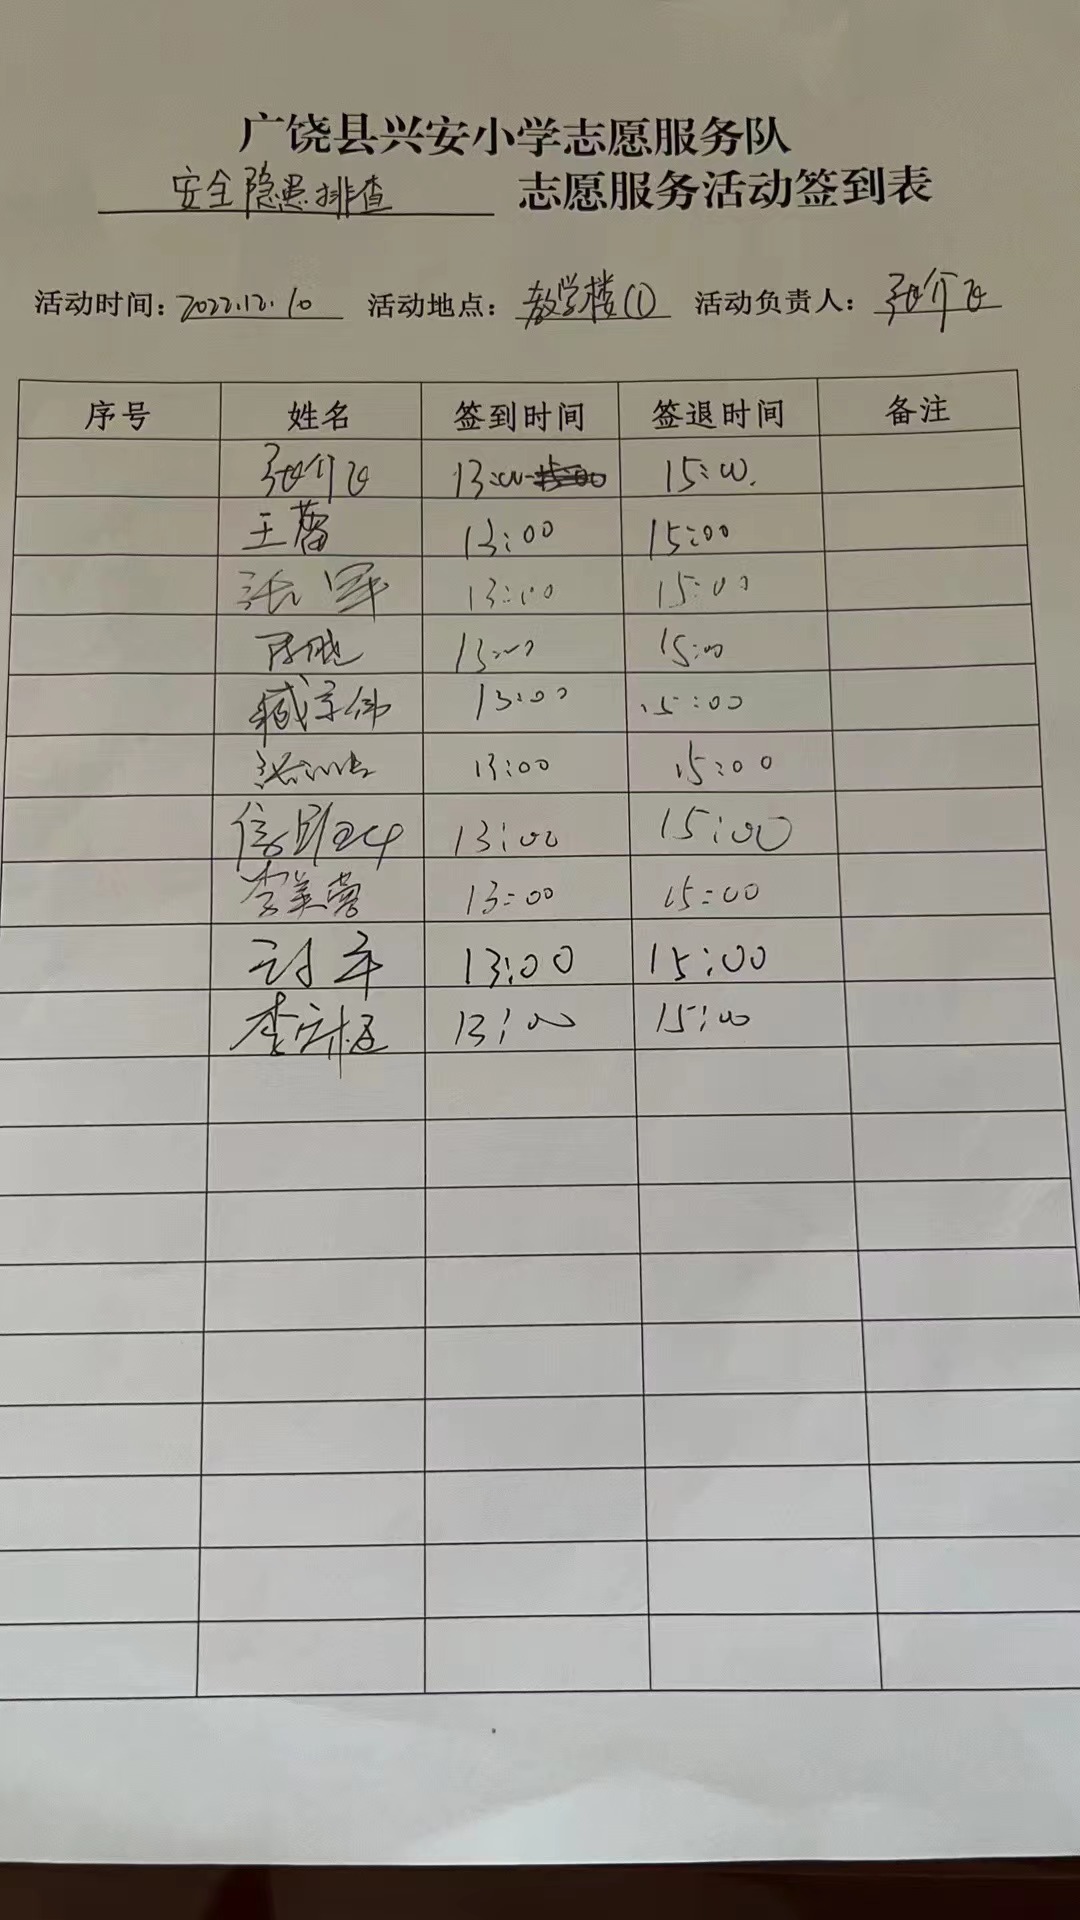 广饶县兴安小学志愿服务队
安全隐患排查 志愿服务活动签到表
活动时间：2022.12.10 活动地点：教学楼(1) 活动负责人：
序号 姓名 签到时间 签退时间 备注
13:00 15:00.
王蕾 13:00 15:00
张军 13:00 15:00
陈晓 13:00 15:00
臧京伟 13:00 15:00
13:00 15:00
13:00 15:00
李美蓉 13:00 15:00
13:00 15:00
13:00 15:00